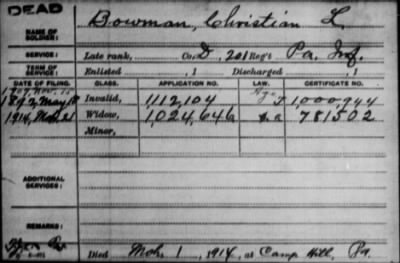 DEAD
NAME OF SOLDIER: Bowman, Christian L.
SERVICE: Late rank, Co. D, 201 Reg't Pa. Inf.
TERM OF SERVICE: Enlisted , 1 Discharged , 1
DATE OF FILING. CLASS. APPLICATION NO. LAW. CERTIFICATE NO.
1892, May Invalid, 1,112,104 1,000,944
1914, Widow, 1,024,646 781502
Minor,
ADDITIONAL SERVICES:
REMARKS:
Died Mch. 1, 1914, at Camp Hill, Pa.